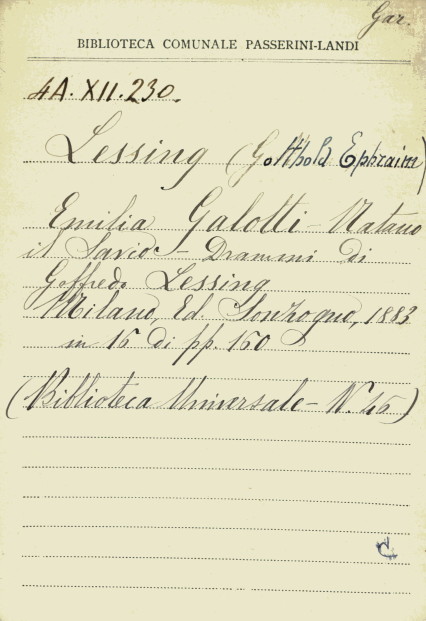 Gar.
BIBLIOTECA COMUNALE PASSERINI-LANDI
4A. XII. 230.
Lessing (Gotthold Ephraim)
Emilia Galotti - Natano
il Savio - Drammi di
Goffredo Lessing
Milano, Ed. Sonzogno, 1883
in 16 di pp. 160
(Biblioteca Universale - N. 45)
C